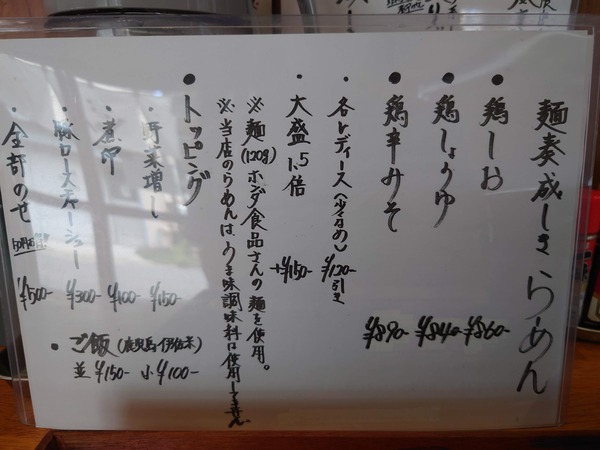 麺奏成しきらめん
・鶏しお ¥860-
・鶏しょうゆ ¥840-
・鶏辛みそ ¥890-
・各レディース(少なめ) ¥120-引き
・大盛1.5倍 +¥150-
※麺(120g)ホンダ食品さんの麺を使用。
※当店のらめんは、うま味調味料は使用してません
・トッピング
・野菜増し ¥150-
・煮卵 ¥100-
・豚ロースチャーシュー ¥300-
・全部のせ ¥500-
・ご飯(鹿児島伊佐米)
並¥150- 小¥100-